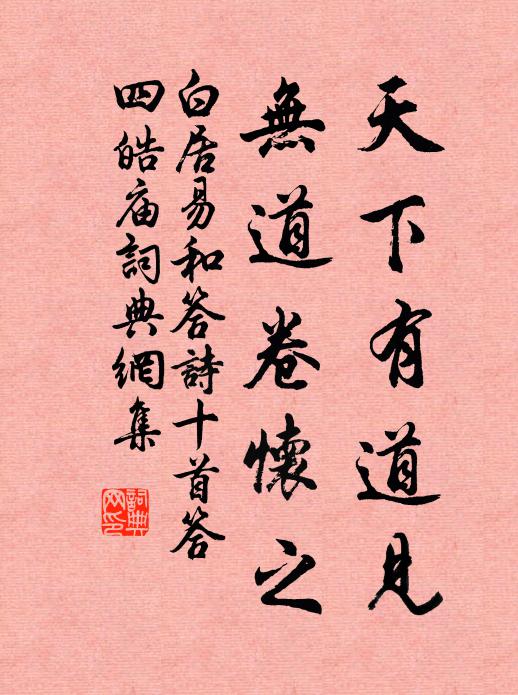 天下有道見
無道卷懷之
白居易和答詩十首答
四皓庙詞典網集
詞典網印